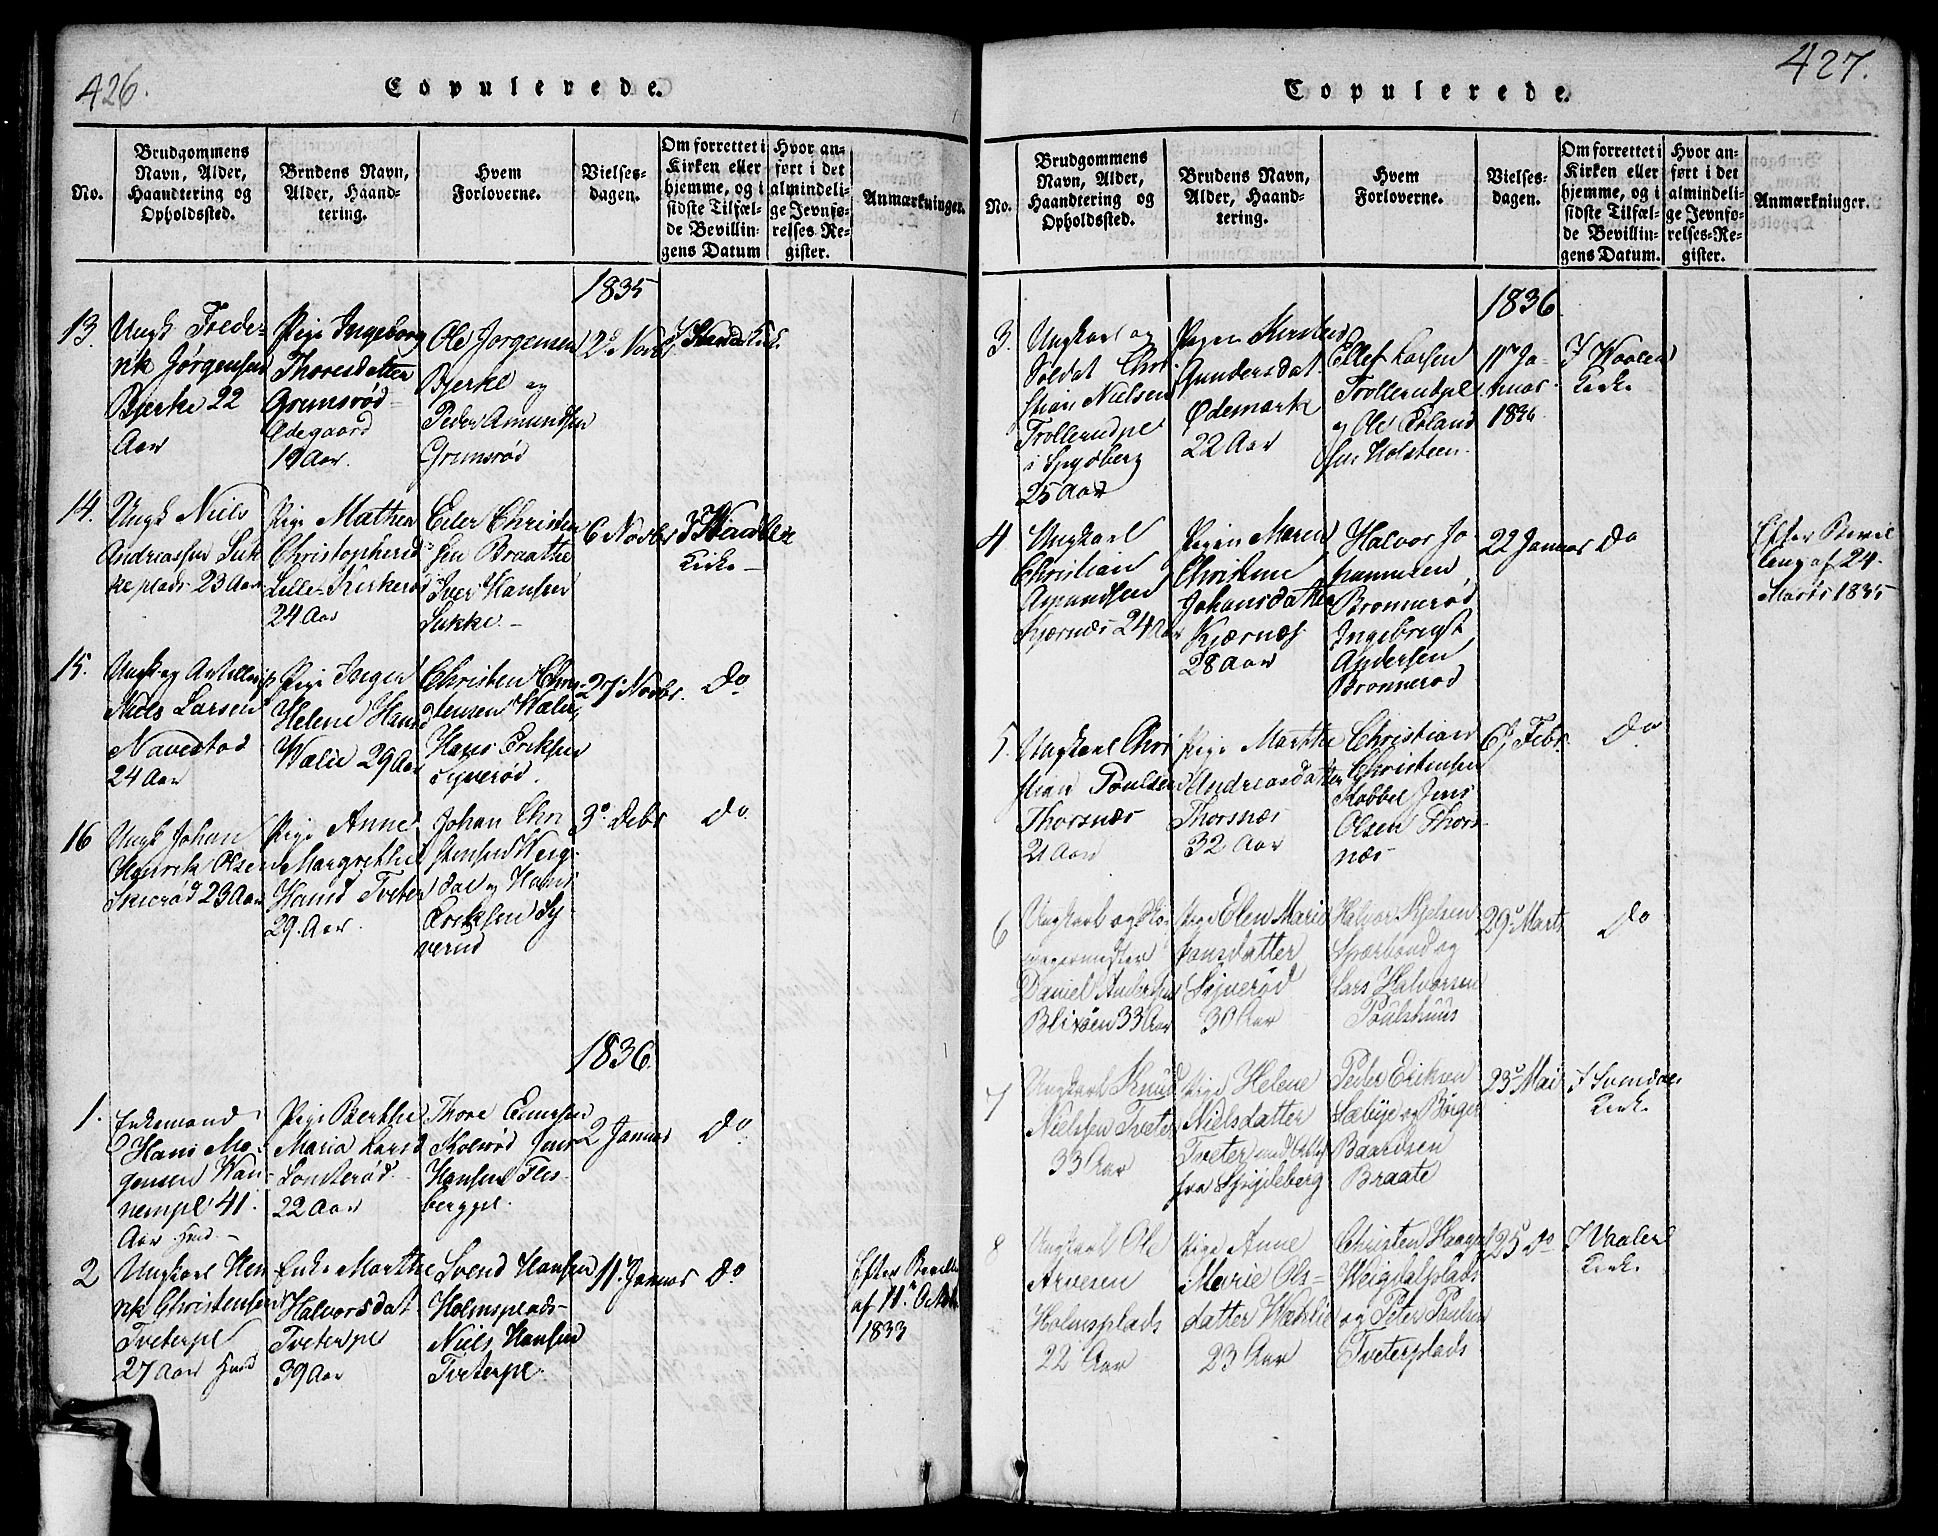 426.
Copulerede.
No.
Brudgommens
Navn, Alder,
Haandtering og
Opholdssted.
Brudens Navn,
Alder, Haand-
tering.
Hvem
Forloverne.
Vielses-
dagen.
Om forrettet i
Kirken eller
hjemme, og i
sidste Tilfæl-
de Bevillin-
gens Datum
Hvor an-
ført i det
almindeli-
ge Jevnfø-
relses-Re-
gister.
Anmærkninger.
1835
13.
Ungk Frede-
rik Jørgensen
Bjerke 22
Aar
Pige Ingeborg
Thoresdatter
Grimsrød
Ødegaard
19 Aar.
Ole Jorgensen
Bjerke og
Peder Amundsen
Grimsrød
2de Novb
14.
Ungk Niels
Andreassen Suk
keplads 23 Aar
Pige Mathea
Christophersd
Lille-Kirkerød
24 Aar
Eiler Christen
sen Braathe
Iver Hansen
Sukke.
6 Novbr
Kirke
15.
Ungk og
Niels Larsen
Navestad
24 Aar
Pige Inger
Helene Hansd
Wælie 29 Aar
Christen Chri
stensen Wælie
Hans Eriksen
Syverød.
27 Novbr.
Do
16
Ungk Johan
Henrik Olsen
23 Aar
Pige Anne
Margrethe
Hansd Tveter
29 Aar.
Johan Chri
stensen Weig
dal og Hans
Eriksen Sy
verud
3e Debr
Do.
1836
1.
Enkemand
Hans Mo-
gensen Wan-
nempl 41.
Aar
Pige Berthe
Maria Larsd
22 Aar
Thore Einersen
Kolsrød Jens
Hansen Fles-
bergpl.
2 Januar
Do
2
Ungkarl Hen
rik Christensen
Tveterpl
27 Aar
Enke Marthe
Halvorsdat
Tveterpl
39 Aar
Svend Hansen
Holmsplads
Niels Hansen
Tveterpl.
11. Januar
Do
Efter Bevilli
af 11. Octob
1833
427.
Copulerede.
No.
Brudgommens
Navn, Alder,
Haandtering og
Opholdssted.
Brudens Navn,
Alder, Haand-
tering.
Hvem
Forloverne.
Vielses-
dagen.
Om forrettet i
Kirken eller
hjemme, og i
sidste Tilfæl-
de Bevillin-
gens Datum.
Hvor an-
ført i det
almindeli-
ge Jevnfø-
relses-Re-
gister.
Anmærkninger.
1836
3.
Ungkarl og
Soldat Chri
stian Nielsen
Trollerudpe
i Spydberg
25 Aar
Pigen Kirsten
Gundersdat
Ødemark
22 Aar
Ellef Larsen
Trollerudpl
og Ole Erland
sen Holsteen
11te Ja-
nuar
1836.
I Waaler
Kirke
4
Ungkarl
Christian
Amundsen
Kjærnæs 24 Aar
Pigen Maren
Christine
Johansdatter
Kjærnæs
28 Aar
Halvor Jo
hannesen
Brønnerød
Ingebregt
Andersen
Brønnerød
22 Januar
Do
Efter Bevil
ling af 24
Marts 1835
5.
Ungkarl Chri
stian Poulsen
Thorsnæs
21 Aar
Pige Marthe
Andreasdatter
Thorsnæs
32 Aar
Christian
Christensen
Kobbel Jens
Olsen Thors-
næs
6 Febr.
Do
6
Ungkarl og Sko
magermester
Daniel Andersen
Blixøen 33 Aar
Pige Elen Marie
Hansdatter
Syverød
30 Aar
Halvor Njelsen
Spærbond og
Lars Halvorsen
Poulshuus
29 Marts
Do
7
Ungkarl Knud
Nielssen Tveter
33 Aar
Pige Helene
Nielsdatter
Tveter
fra Spydeberg
Peder Eriksen
Sæbye og Børger
Baardsen
Braate
23 Mai
I Svendal
Kirk.
8
Ungkarl Ole
Arvesen
Holmsplads
22 Aar
Pige Anne
Marie Ols-
datter Wæhlie
23 Aar
Christen Haagen
Weigdalplads
og Peter Poulsen
Tveterplads
25 do
I Vaaler
Kirk.